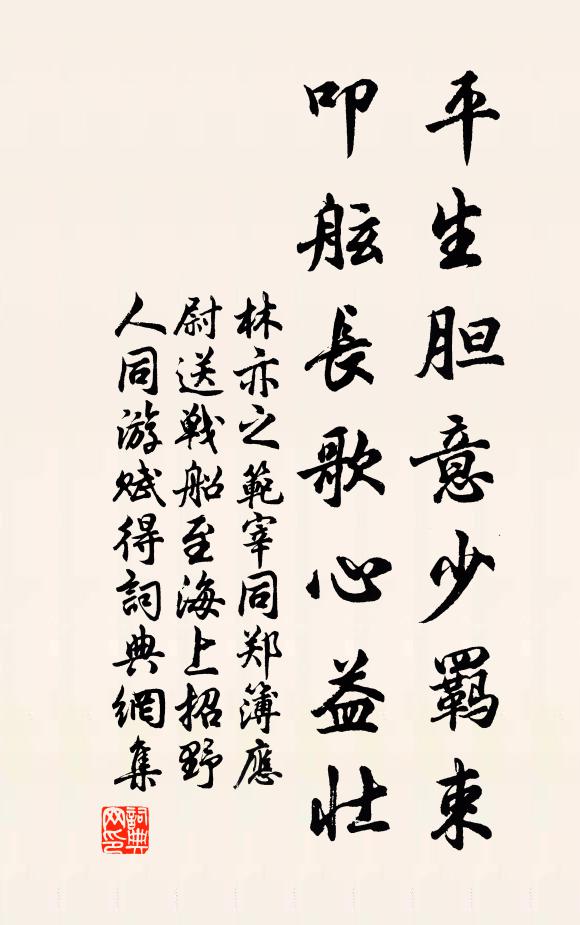 平生胆意少羈束
叩舷長歌心益壮
林亦之範宰同郑簿應
尉送戦船至海上招野
人同游赋得詞典網集
詞典网印